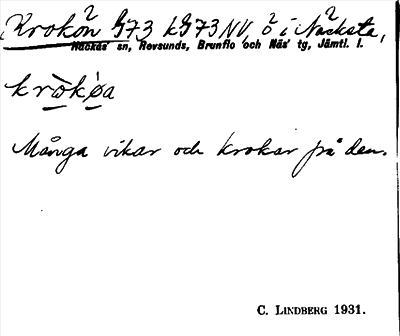 Krokön G73 kG73NV, ö i Näcksta,
Näckås sn, Revsunds, Brunflo och Näs tg, Jämtl. l.
kròkø̀a
Många vikar och krokar på den.
C. LINDBERG 1931.